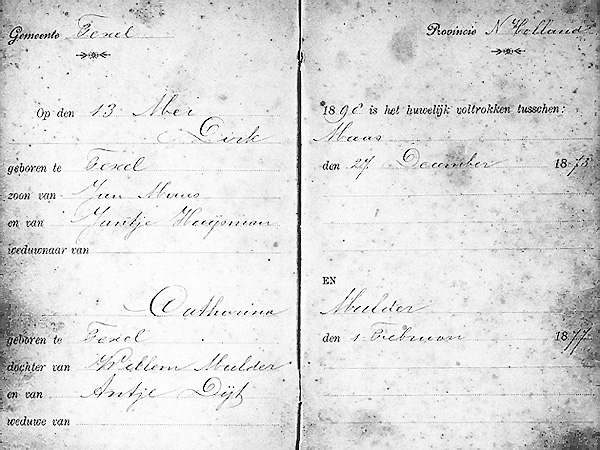 Gemeente Texel Provincie N Holland
Op den 13 Mei 1896 is het huwelijk voltrokken tusschen:
Dirk Maas
geboren te Texel den 27 December 1875
zoon van Jan Maas
en van Jantje Huisman
weduwnaar van
EN
Catharina Mulder
geboren te Texel den 1 Februari 1877
dochter van Willem Mulder
en van Antje Dijt
weduwe van